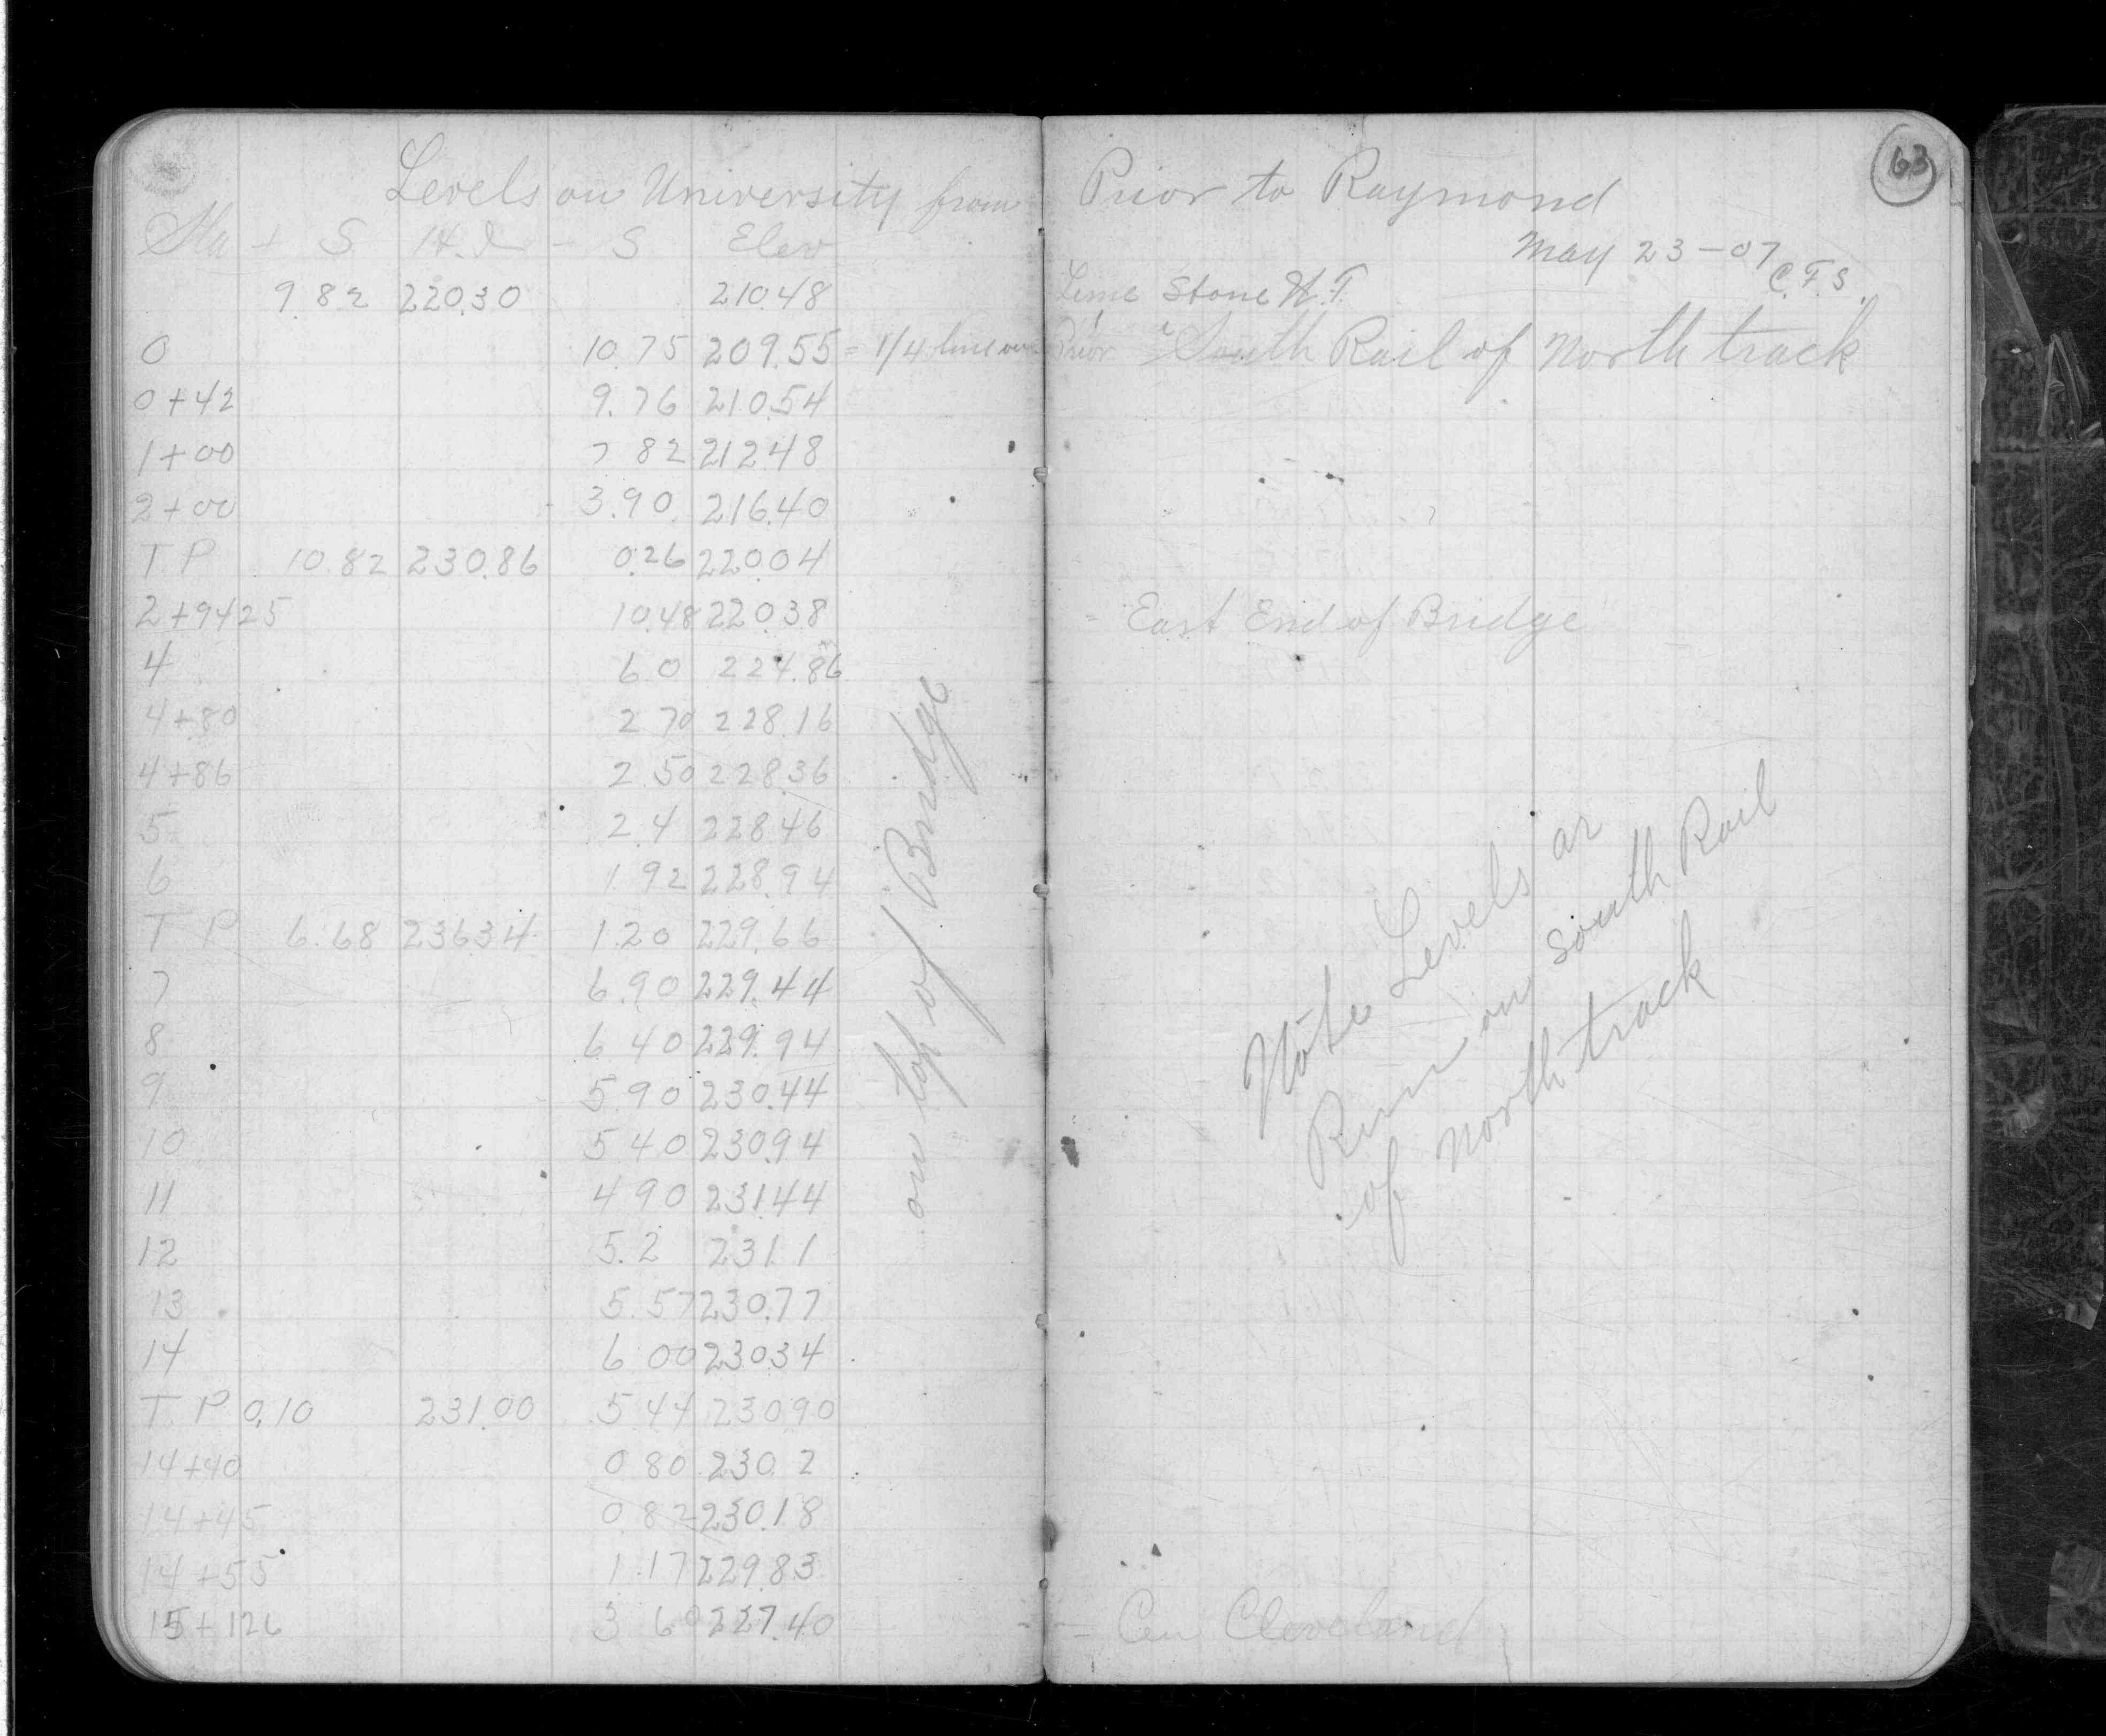 63
Levels on University from Prior to Raymond
Sta + S H.I. - S Elev
May 23-07
C.F.S.
9.82 220.30 210.48 Lime Stone W.T.
0 10.75 209.55 = 1/4 line on Prior South Rail of North track
0+42 9.76 210.54
1+00 7 82 212.48
2+00 3.90 216.40
T P 10.82 230.86 0.26 220.04
2+9425 10.48 220.38 = East End of Bridge
4 6 0 224.86
4+80 2 70 228.16
4+86 2.50 228.36
5 2.4 228.46
6 1 92 228.94
T P 6.68 236.34 1.20 229.66
7 6.90 229.44
8 6.40 229.94
9 5.90 230.44
10 5 40 230.94
11 4 90 231.44
12 5.2 231.1
13 5.57 230.77
14 6 00 230.34
T. P 0.10 231.00 5 44 230.90
14+40 0 80 230.2
14+45 0.82 230.18
14+55 1.17 229.83
15+126 3 60 227.40 = Cen Cleveland
on top of Bridge
Note Levels ar
Run on South Rail
of North track